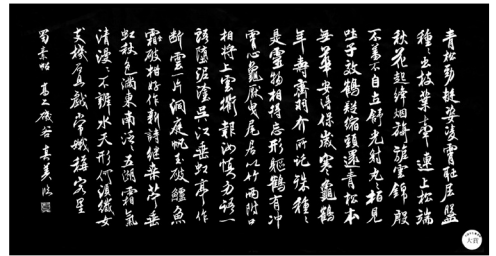 青松勁挺姿凌霄耻屈盤
種種出枝葉牽連上松端
秋花起絳烟旖旎雲錦殷
不羞不自立舒光射丸丸柏見
吐子效鶴疑縮頸還青松本
無華安得保歲寒龜鶴
年壽齊羽介所託殊種種
是靈物相得忘形軀鶴有沖
霄心龜厭曳尾居以竹兩附口
相將上雲衢報汝慎勿語一
語墮泥塗吳江垂虹亭作
斷雲一片洞庭帆玉破鱸魚
霜破柑好作新詩繼桑苧垂
虹秋色滿東南泛泛五湖霜氣
清漫漫不辨水天形何須織女
支機石且戲常娥稱客星
蜀素帖
大賞